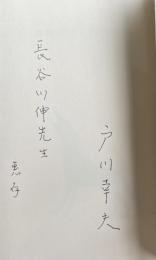 長谷川伸先生
恵存
戸川幸夫